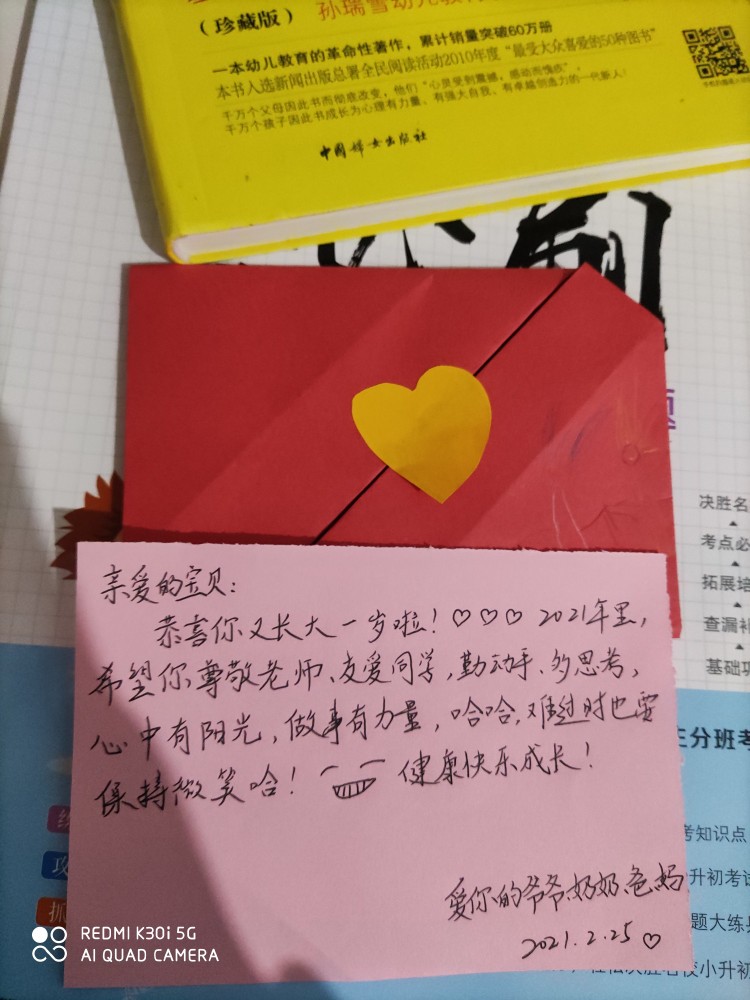 （珍藏版）
一本幼儿教育的革命性著作，累计销量突破60万册
本书入选新闻出版总署全民阅读活动2010年度“最受大众喜爱的50种图书”
千万个父母因此书而彻底改变，他们“心灵受到震撼，感动而愧疚”，
千万个孩子因此书成长为心理有力量、有强大自我、有卓越创造力的一代新人！
中国妇女出版社
决胜名
考点必
拓展培
查漏补
基础巩
亲爱的宝贝：
恭喜你又长大一岁啦！♡♡♡ 2021年里，
希望你尊敬老师、友爱同学，勤动手、多思考，
心中有阳光，做事有力量，哈哈，难过时也要
保持微笑哈！ 健康快乐成长！
爱你的爷爷.奶奶.爸.妈
2021.2.25 ♡
分班考
考知识点
升初考试
题大练
攻
抓
REDMI K30i 5G
AI QUAD CAMERA